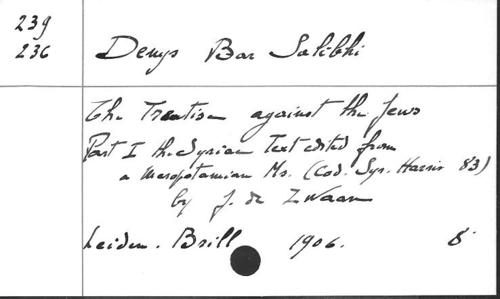 239
236
Denys Bar Salibhi
The Treatise against the Jews
Part I the Syriac Text edited from
a Mesopotamian Ms. (Cod. Syr. Harris 83)
by J. de Zwaan
Leiden. Brill 1906. 8°